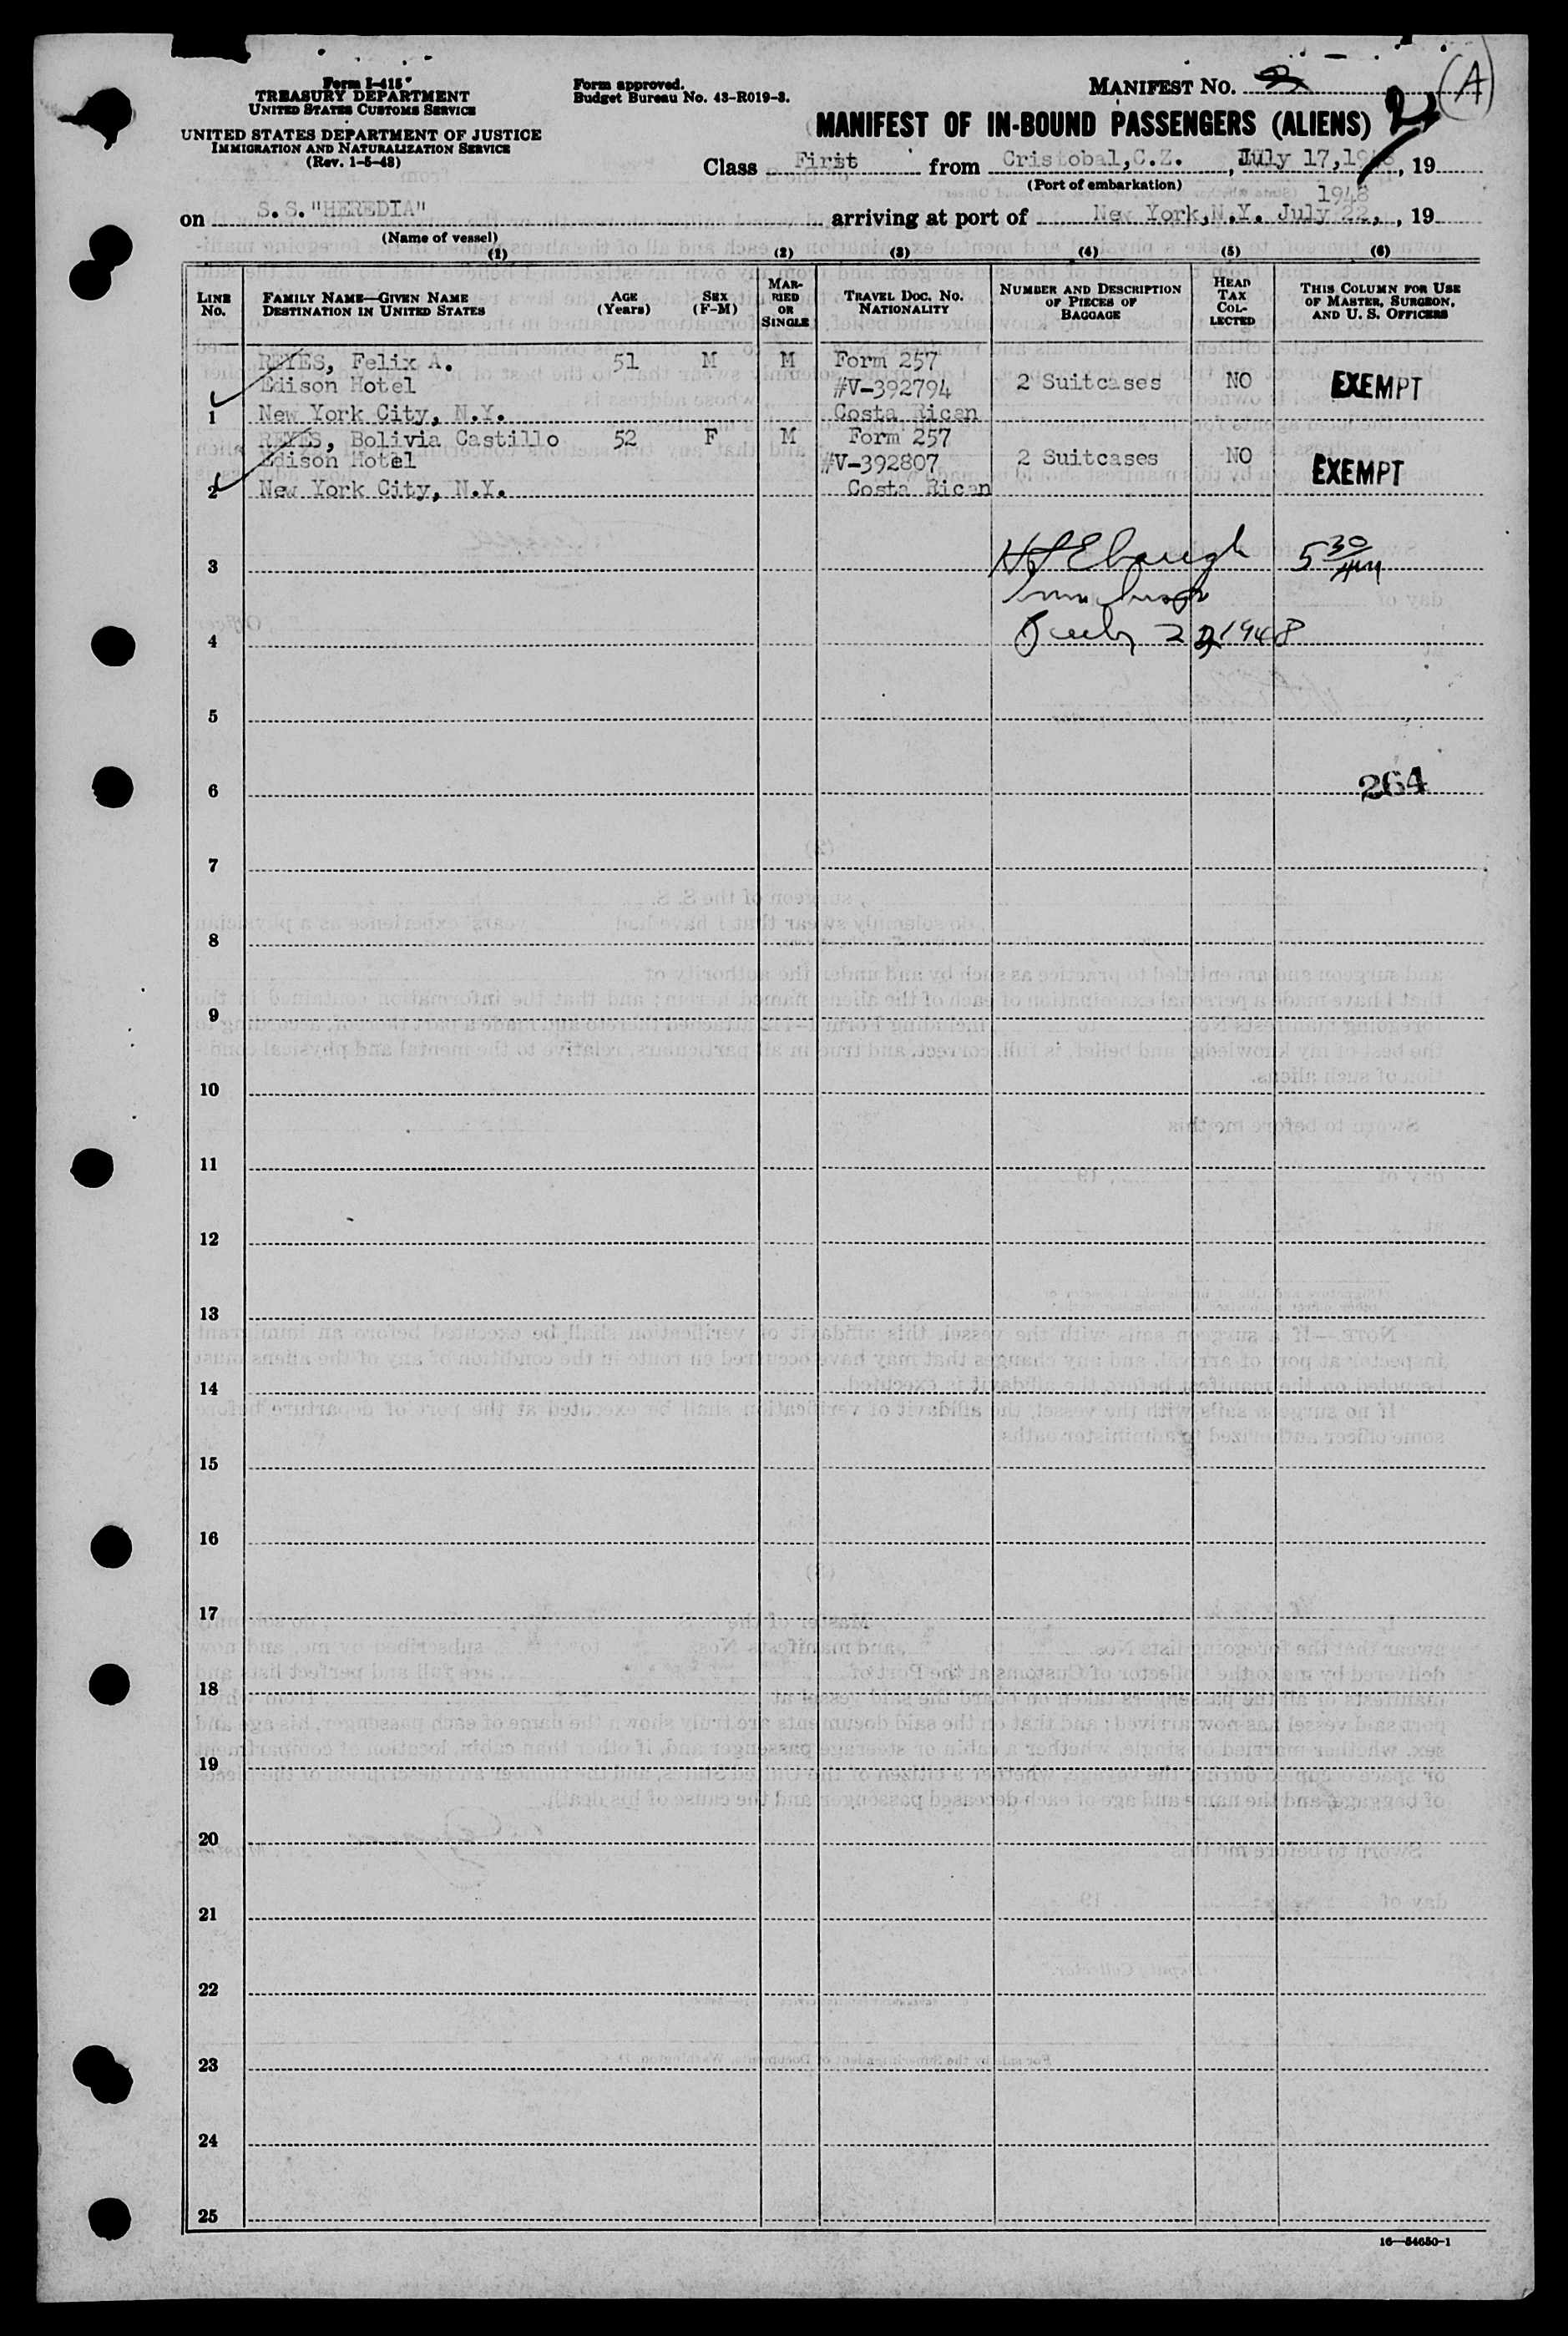 Form I-415
TREASURY DEPARTMENT
UNITED STATES CUSTOMS SERVICE
UNITED STATES DEPARTMENT OF JUSTICE
IMMIGRATION AND NATURALIZATION SERVICE
(Rev. 1-5-48)
Form approved.
Budget Bureau No. 43-R019-3.
MANIFEST NO. 2 (A)
MANIFEST OF IN-BOUND PASSENGERS (ALIENS)
Class First from Cristobal, C.Z. , July 17, 1948, 19
(Port of embarkation)
1948
on S.S. "HEREDIA" arriving at port of New York, N.Y. July 22, , 19
(Name of vessel)
(1) (2) (3) (4) (5) (6)
LINE No. FAMILY NAME—GIVEN NAME DESTINATION IN UNITED STATES AGE (Years) SEX (F-M) MARRIED OR SINGLE TRAVEL DOC. NO. NATIONALITY NUMBER AND DESCRIPTION OF PIECES OF BAGGAGE HEAD TAX COLLECTED THIS COLUMN FOR USE OF MASTER, SURGEON, AND U. S. OFFICERS
REYES, Felix A. 51 M M Form 257
Edison Hotel #V-392794 2 Suitcases NO EXEMPT
1 New York City, N.Y. Costa Rican
REYES, Bolivia Castillo 52 F M Form 257
Edison Hotel #V-392807 2 Suitcases NO EXEMPT
2 New York City, N.Y. Costa Rican
3 5 30
4 July 22 1948
5
6 264
7
8
9
10
11
12
13
14
15
16
17
18
19
20
21
22
23
24
25
16—54650-1